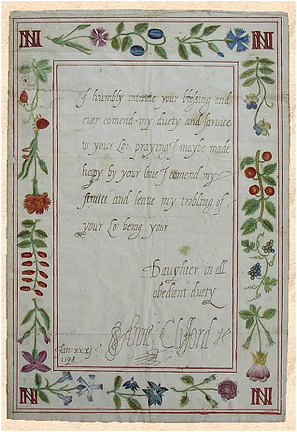 I humbly intreate your blessing and
ever comend my duety and service
to your Lo: praying I maybe made
hapy by your love I comend my
service and leave my trobling of
your Lo being your
Daughter in all
obedient duety
Anne Clifford
Jan: xxxj
1598